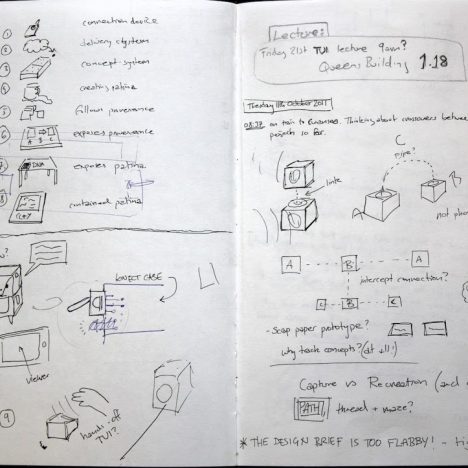 1 connection device
2 delivery system
3 concept-system
4 creating patina
5 follows provenance
6 exposes provenance
A B C
7 exposes patina
8 contained patina
?
LOWER CASE
viewer
9
hands-off
TUI?
Lecture:
Friday 21st TUI lecture 9am?
Queens Building 1.18
Tuesday 11th October 2011
08:37 on train to Dundee. Thinking about crossovers between
projects so far.
link
C
pipe?
A
B
not
A B A
intercept connection?
C B C
- Scrap paper prototype?
why track concepts?
Capture vs Recreation (and
PATH thread + maze?
* THE DESIGN BRIEF IS TOO FLABBY! -